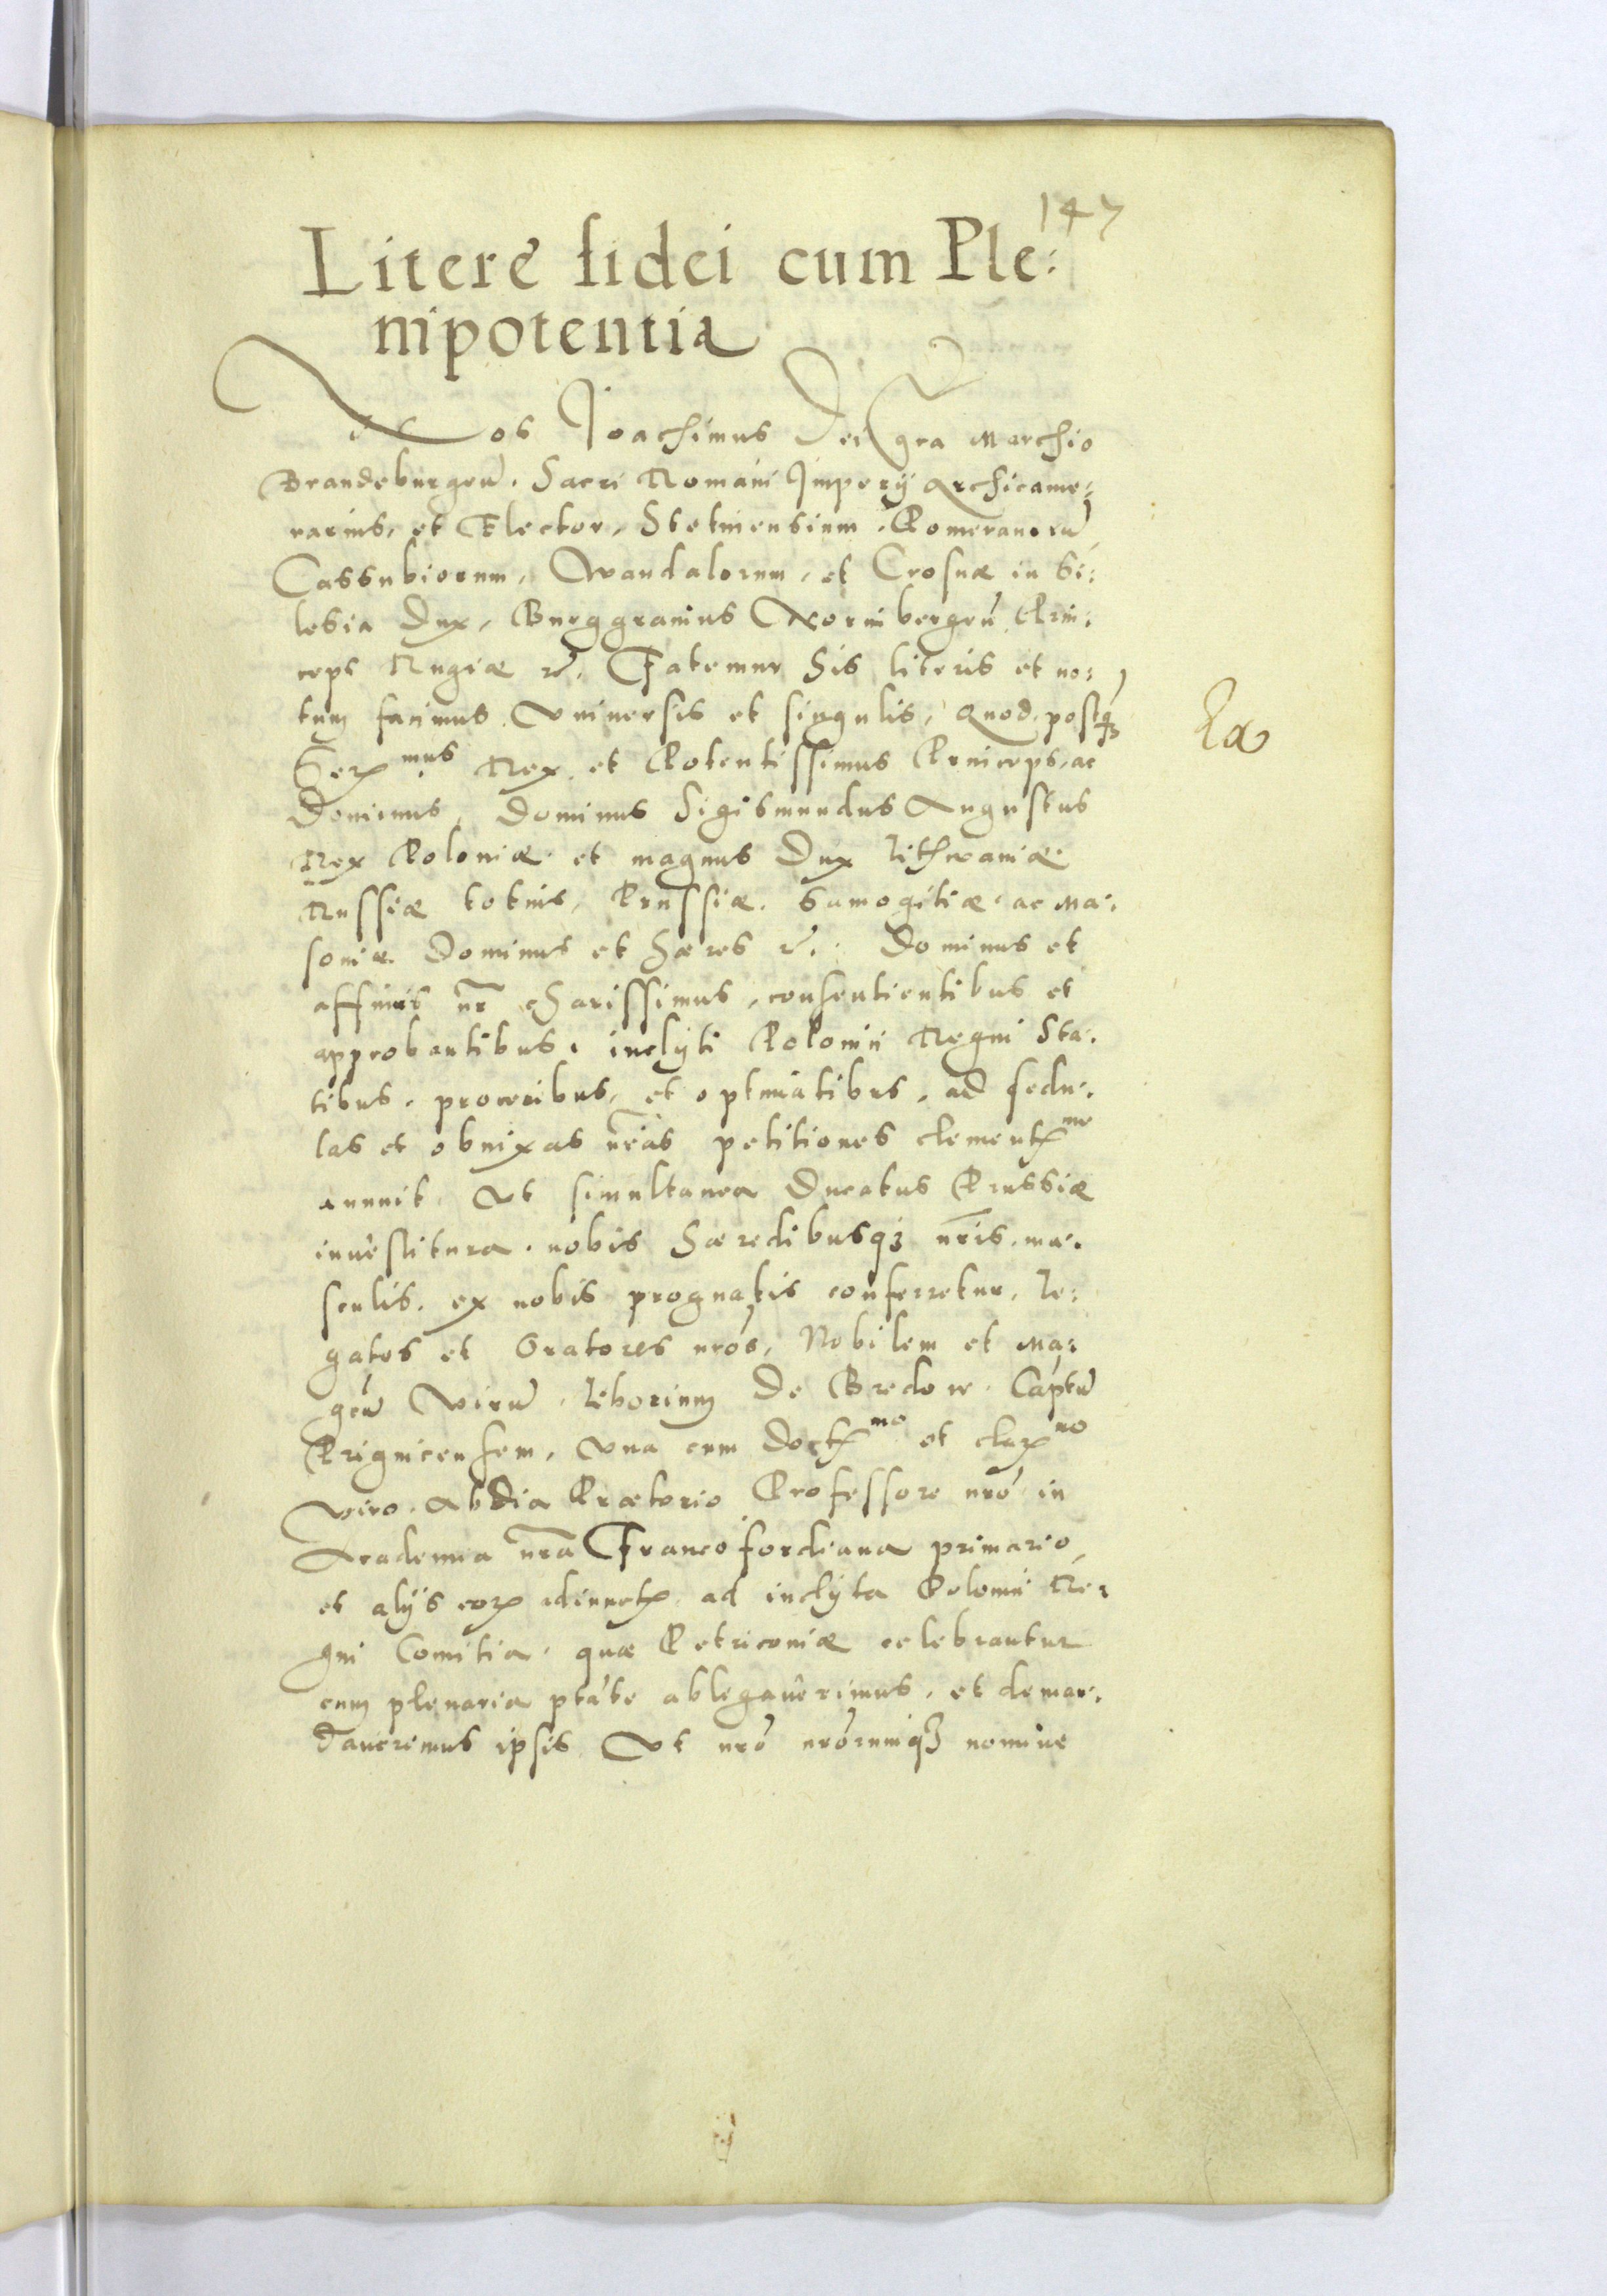 147
Litere fidei cum Ple:
nipotentia
Nos Joachimus Dei gra Marchio
Brandeburgeñ. Sacri Romani Imperij Archicame:
rarius, et Elector, Stetinensium, Pomeranorũ,
Cassubiorum, Wandalorum, et Crosnæ in Si:
lesia Dux, Burggravius Norimbergeñ, Prin:
ceps Rugiæ etc. Fatemur his literis et no:
tum facimus Vniversis et singulis, Quod postq̃
Serмus Rex et Potentissimus Princeps, ac
Dominus, Dominus Sigismundus Augustus
Rex Poloniæ et magnus Dux Lithwaniæ
Russiæ totius, Prussiæ. Samogitiæ ac Ma:
soviæ Dominus et hæres etc. Dominus et
affinis nr̃ charissimus, consentientibus et
approbantibus, inclyti Polonici Regni Sta:
tibus, proceribus, et optimatibus, ad sedu:
las et obnixas nr̃as petitiones clementme
annuit, Vt simultanea Ducatus Prussiæ
investitura, nobis hæredibusq3 nr̃is ma:
sculis, ex nobis prognatis conferretur, Le:
gatos et Oratores nr̃os, Nobilem et Ma:
gcũ Virũ, Leborium De Bredow Captũ
Prignicensem, Vna cum Doctmo et clarmo
viro Abdia Prætorio Professore nr̃o in
Academia nr̃a Francofordiana primario,
et alijs eor adiunct, ad inclyta Polonici Re:
gni Comitia, quæ Petricoviæ celebrantur
cum plenaria ptãte ablegaverimus, et deman:
daveremus ipsis Vt nr̃o nr̃orumq3 nomine